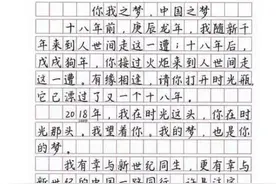 你我之梦，中国之梦
十八年前，庚辰龙年，我随新千
年来到人世间走这一遭；十八年后，
戊戌狗年，你接过火炬来到人世间走
这一遭。有缘相逢，请你打开时光瓶，
它已漂过了又一个十八年。
2018年，我在时光这头，你在时
光那头，我望着你。我的梦，也是你
的梦。
我有幸与新世纪同生，更有幸与
新世纪的中国一路同行